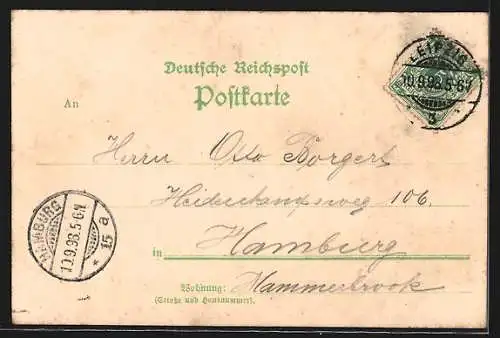 LEIPZIG
10.9.96.5-6N
3
Deutsche Reichspost
Postkarte
An
Herrn Otto Borgert
Heidenkampsweg 106.
in Hamburg
Wohnung: Hammerbrook
(Straße und Hausnummer).
HAMBURG
10.9.96.5-6N
* 15 a